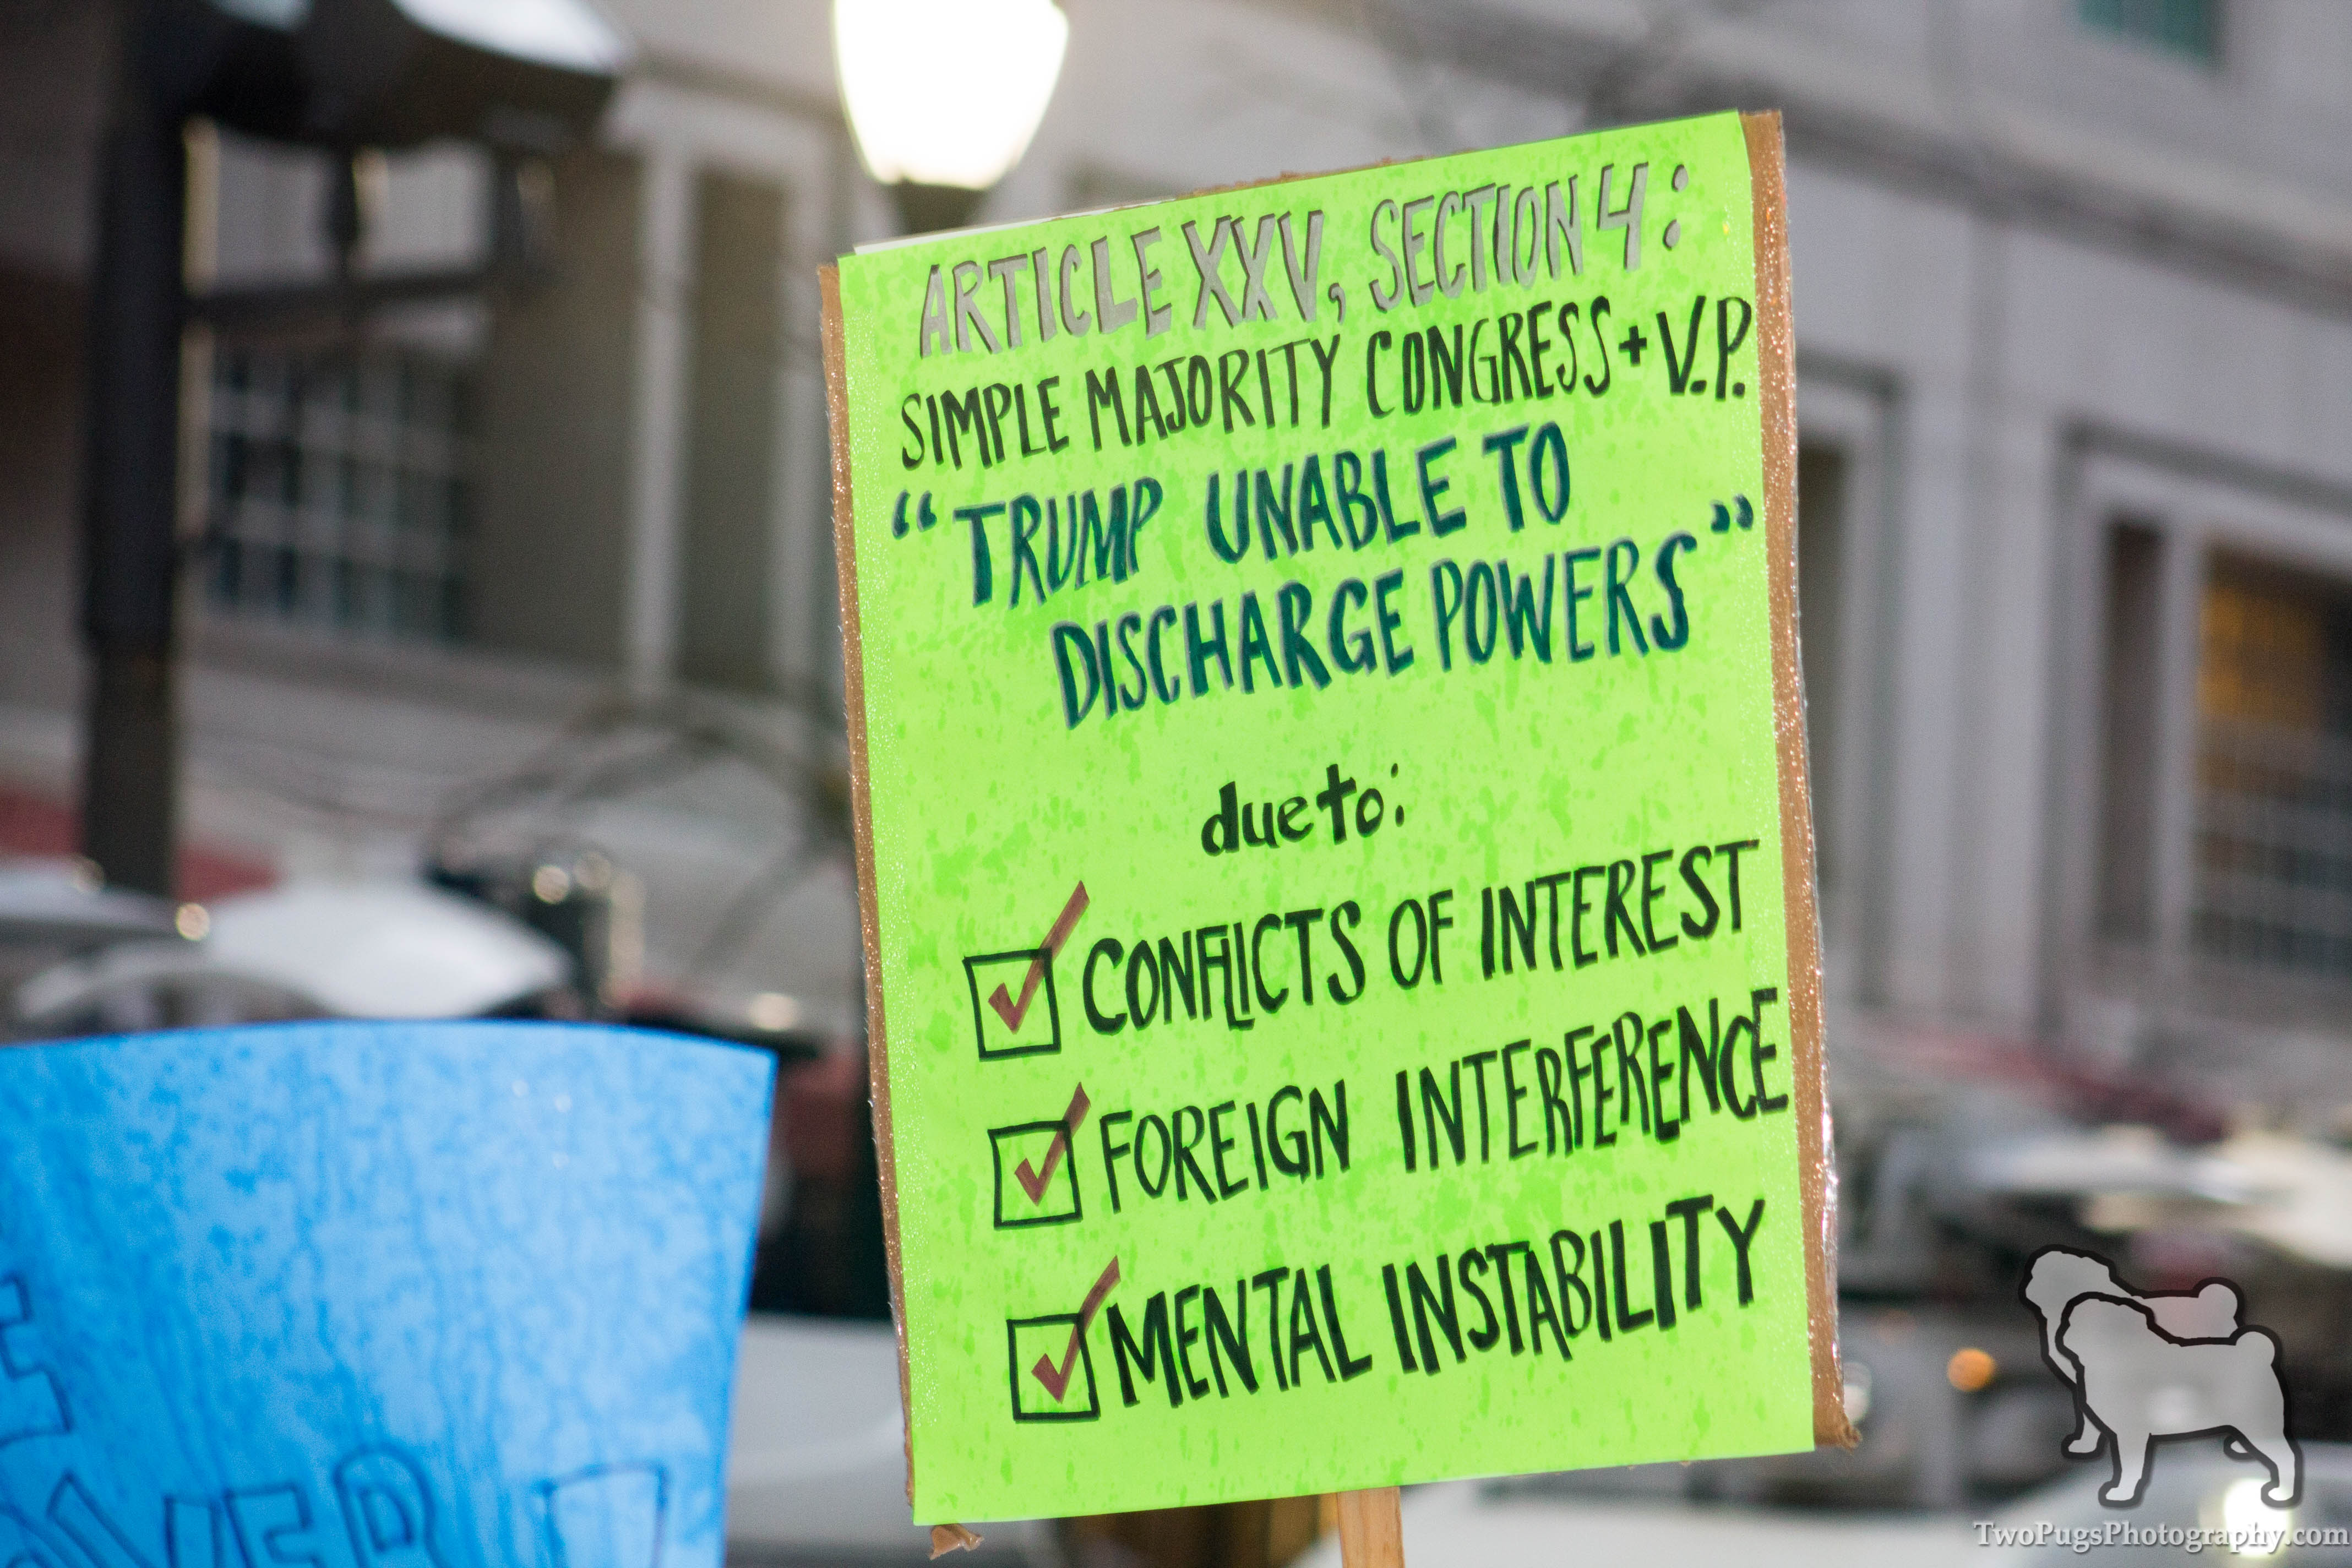 ARTICLE XXV, SECTION 4:
SIMPLE MAJORITY CONGRESS + V.P.
“TRUMP UNABLE TO
DISCHARGE POWERS”
due to:
CONFLICTS OF INTEREST
FOREIGN INTERFERENCE
MENTAL INSTABILITY
TwoPugsPhotography.com